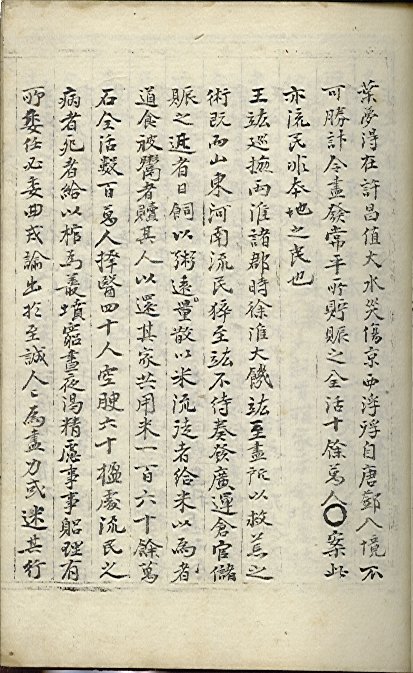 葉夢得在許昌值大水災傷京西浮殍自唐鄧入境不
可勝計令盡發常平所貯賑之全活十餘萬人○案此
亦流民非本地之民也
王竑巡撫兩淮諸郡時徐淮大饑竑至盡所以救荒之
術既而山東河南流民猝至竑不待奏發廣運倉官儲
賑之近者日飼以粥遠量散以米流徙者給米以為者
道食被鬻者贖其人以還其家共用米一百六十餘萬
石全活數百萬人擇醫四十人空廋六十楹處流民之
病者死者給以棺為叢塚窮晝夜湯精慮事事躬理有
所委任必委曲戒諭出於至誠人〻為盡力或述其行